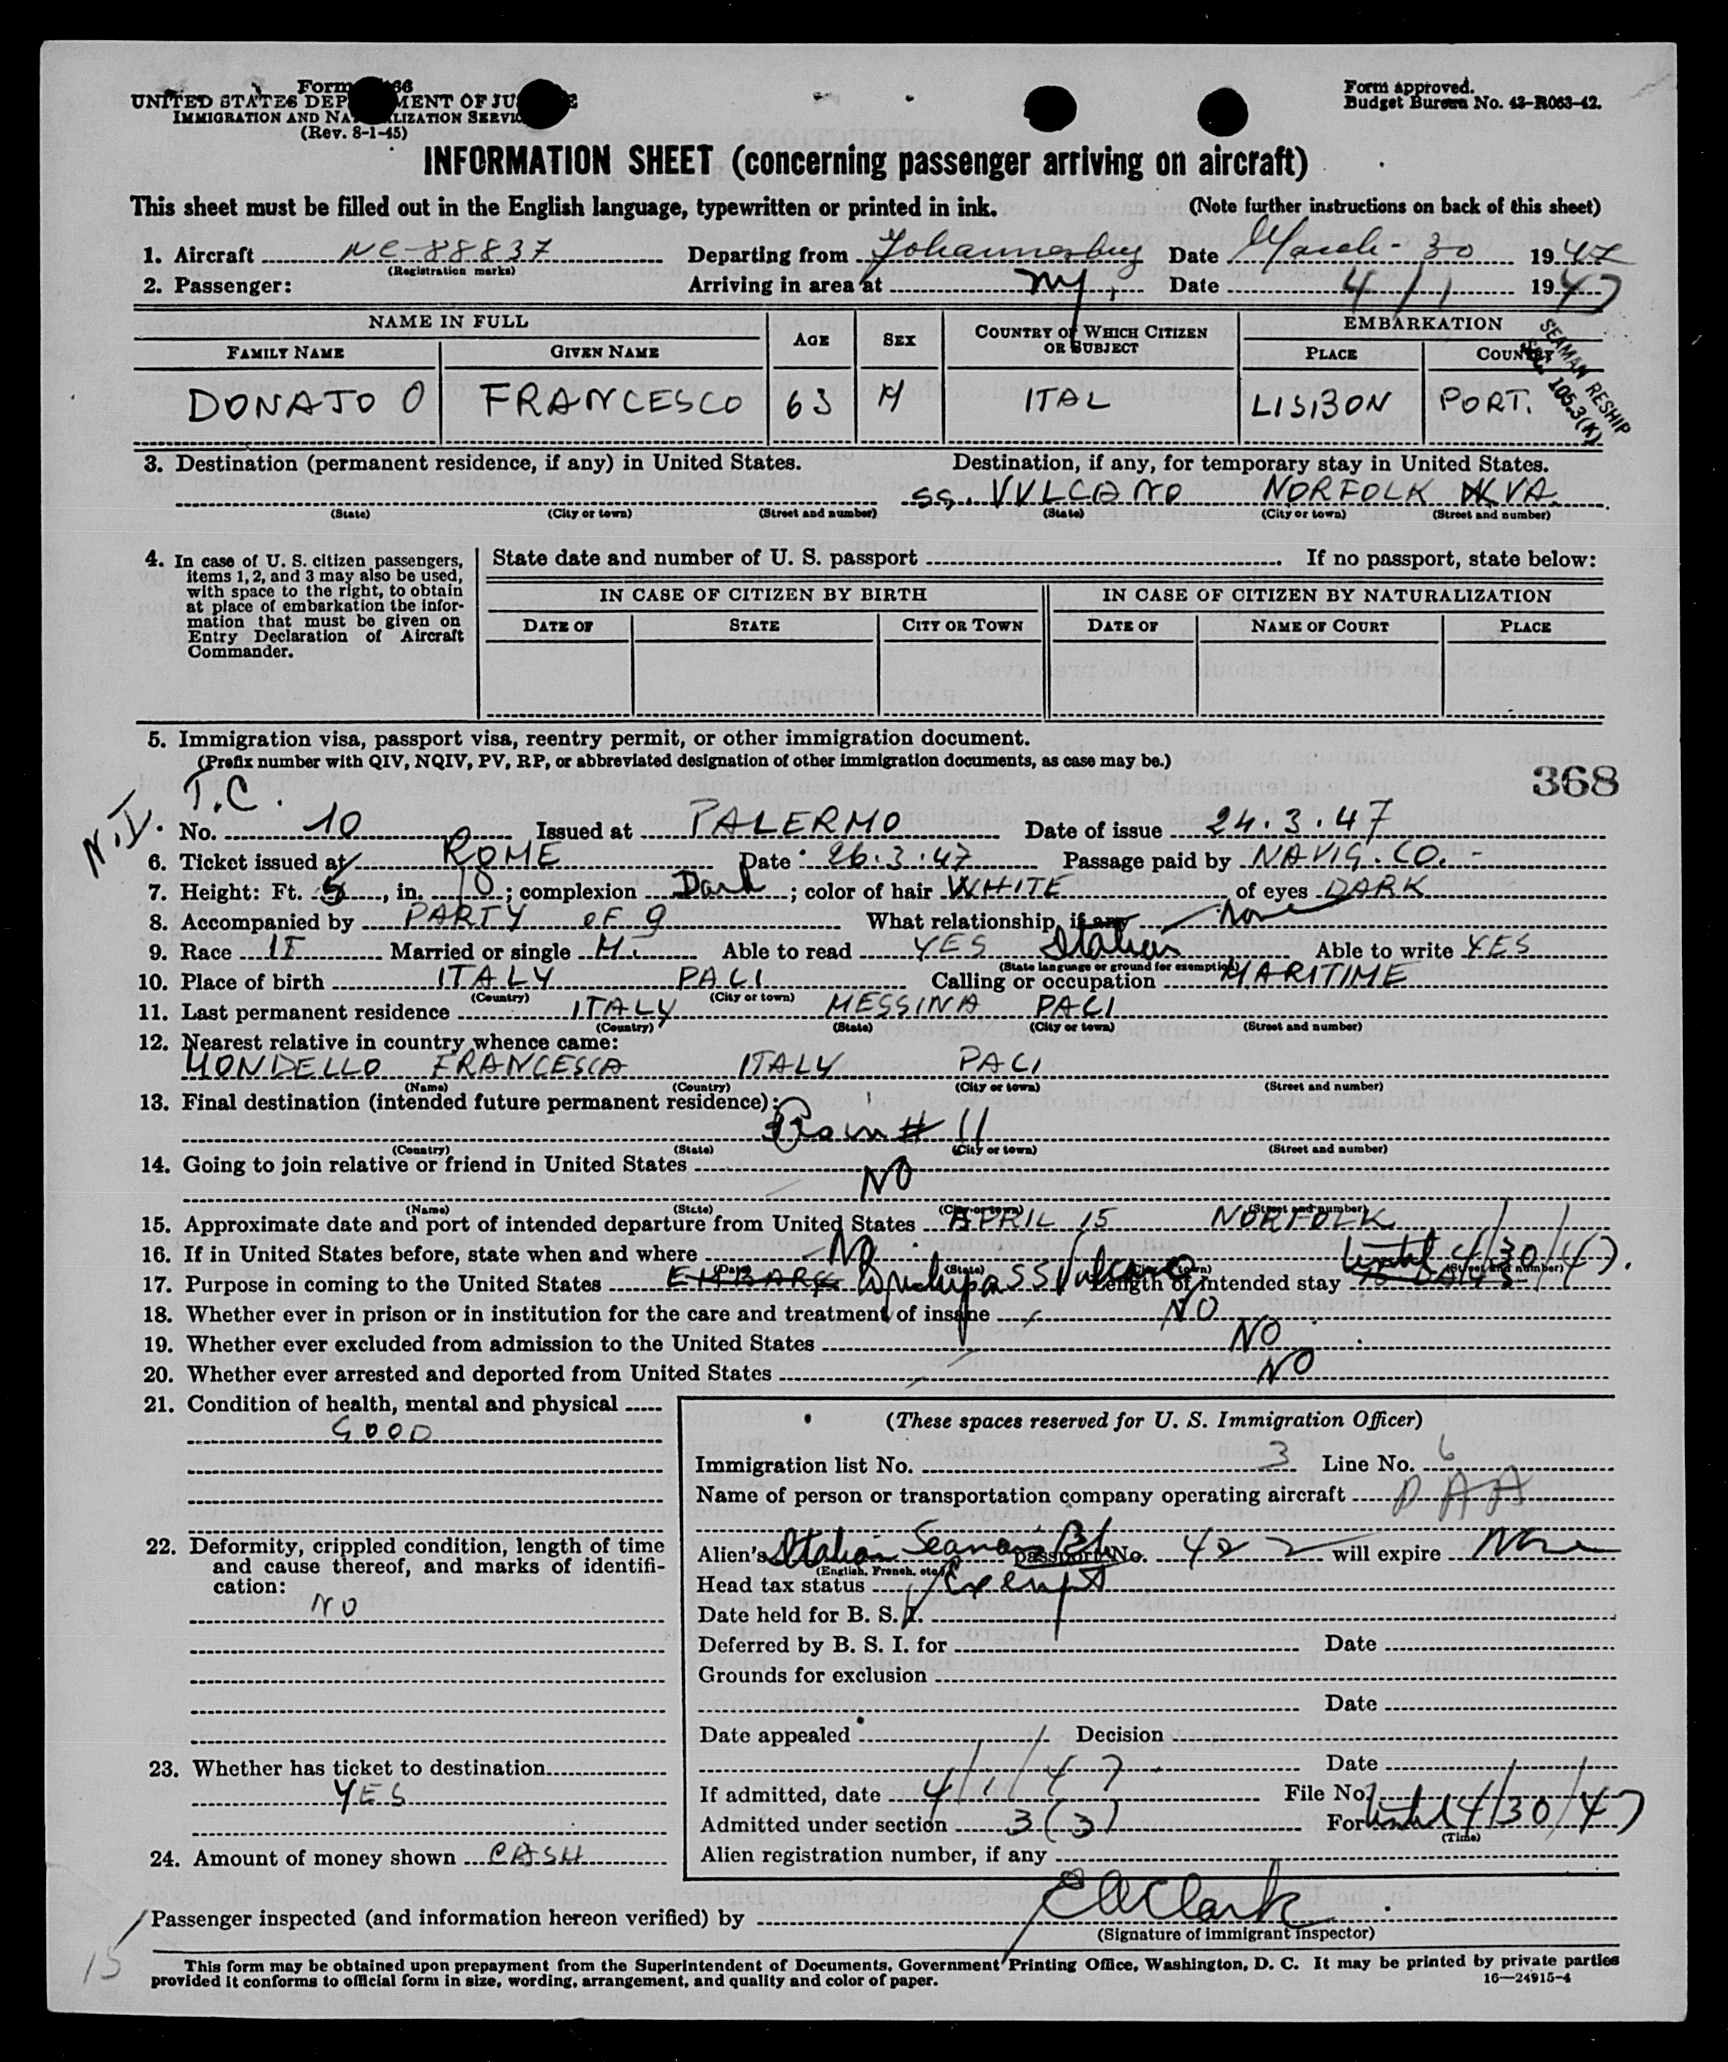 Form 66
UNITED STATES DEP MENT OF JU E
IMMIGRATION AND NA LIZATION SERVI
(Rev. 8-1-45)
Form approved.
Budget Bureau No. 43-R063-42.
INFORMATION SHEET (concerning passenger arriving on aircraft)
This sheet must be filled out in the English language, typewritten or printed in ink. (Note further instructions on back of this sheet)
1. Aircraft NC-88837 Departing from Johannesburg Date March 30 1947
(Registration marks)
2. Passenger: Arriving in area at NY, Date 4/1 1947
NAME IN FULL AGE SEX COUNTRY OF WHICH CITIZEN OR SUBJECT EMBARKATION
FAMILY NAME GIVEN NAME PLACE COUNTRY
SEAMAN RESHIP
SEC. 105.3(K)
DONATO O FRANCESCO 63 M ITAL LISBON PORT.
3. Destination (permanent residence, if any) in United States. Destination, if any, for temporary stay in United States.
SS. VULCANO NORFOLK VA
(State) (City or town) (Street and number) (State) (City or town) (Street and number)
4. In case of U. S. citizen passengers, items 1, 2, and 3 may also be used, with space to the right, to obtain at place of embarkation the information that must be given on Entry Declaration of Aircraft Commander.
State date and number of U. S. passport If no passport, state below:
IN CASE OF CITIZEN BY BIRTH IN CASE OF CITIZEN BY NATURALIZATION
DATE OF STATE CITY OR TOWN DATE OF NAME OF COURT PLACE
5. Immigration visa, passport visa, reentry permit, or other immigration document.
(Prefix number with QIV, NQIV, PV, RP, or abbreviated designation of other immigration documents, as case may be.)
368
T.C.
N.Y.
No. 10 Issued at PALERMO Date of issue 24.3.47
6. Ticket issued at ROME Date 26.3.47 Passage paid by NAVIG. CO.
7. Height: Ft. 5, in. 10; complexion Dark; color of hair WHITE of eyes DARK
8. Accompanied by PARTY OF 9 What relationship, if any None
9. Race IT Married or single M. Able to read YES Italian Able to write YES
(State language or ground for exemption)
10. Place of birth ITALY PACI Calling or occupation MARITIME
(Country) (City or town)
11. Last permanent residence ITALY MESSINA PACI
(Country) (State) (City or town) (Street and number)
12. Nearest relative in country whence came:
MONDELLO FRANCESCA ITALY PACI
(Name) (Country) (City or town) (Street and number)
13. Final destination (intended future permanent residence):
# 11
(Country) (State) (City or town) (Street and number)
14. Going to join relative or friend in United States
NO
(Name) (State) (City or town) (Street and number)
15. Approximate date and port of intended departure from United States APRIL 15 NORFOLK
16. If in United States before, state when and where NO
(Date) (State) (City or town) (Street and number)
17. Purpose in coming to the United States EMBARK SS Vulcano Length of intended stay 15 DAYS until 4/30/47.
18. Whether ever in prison or in institution for the care and treatment of insane NO
19. Whether ever excluded from admission to the United States NO
20. Whether ever arrested and deported from United States NO
21. Condition of health, mental and physical
GOOD
22. Deformity, crippled condition, length of time and cause thereof, and marks of identification:
NO
23. Whether has ticket to destination
YES
24. Amount of money shown CASH
(These spaces reserved for U. S. Immigration Officer)
Immigration list No. 3 Line No. 6
Name of person or transportation company operating aircraft PAA
Alien's Italian Seaman's Bk passport No. 422 will expire None
(English, French, etc.)
Head tax status Exempt
Date held for B. S. I.
Deferred by B. S. I. for Date
Grounds for exclusion
Date
Date appealed Decision
Date
If admitted, date 4/1/47 File No.
Admitted under section 3(3) For until 4/30/47
(Time)
Alien registration number, if any
Passenger inspected (and information hereon verified) by EA Clark
(Signature of immigrant inspector)
15
This form may be obtained upon prepayment from the Superintendent of Documents, Government Printing Office, Washington, D. C. It may be printed by private parties
provided it conforms to official form in size, wording, arrangement, and quality and color of paper. 16—24915-4